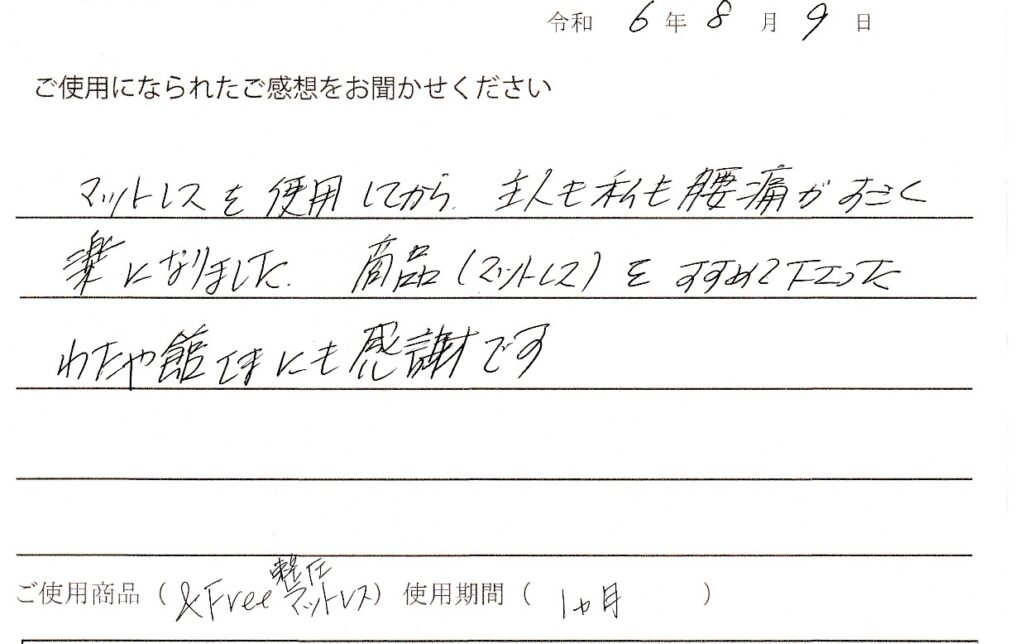 令和 6 年 8 月 9 日
ご使用になられたご感想をお聞かせください
マットレスを使用してから、主人も私も腰痛がすごく
楽になりました。商品(マットレス)をすすめて下さった
わたや館さまにも感謝です
整圧
ご使用商品（&Free マットレス）使用期間（ 1ヵ月 ）